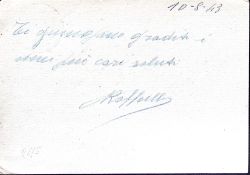 10-8-43
Ti giungano graditi i
miei più cari saluti
Raffaello